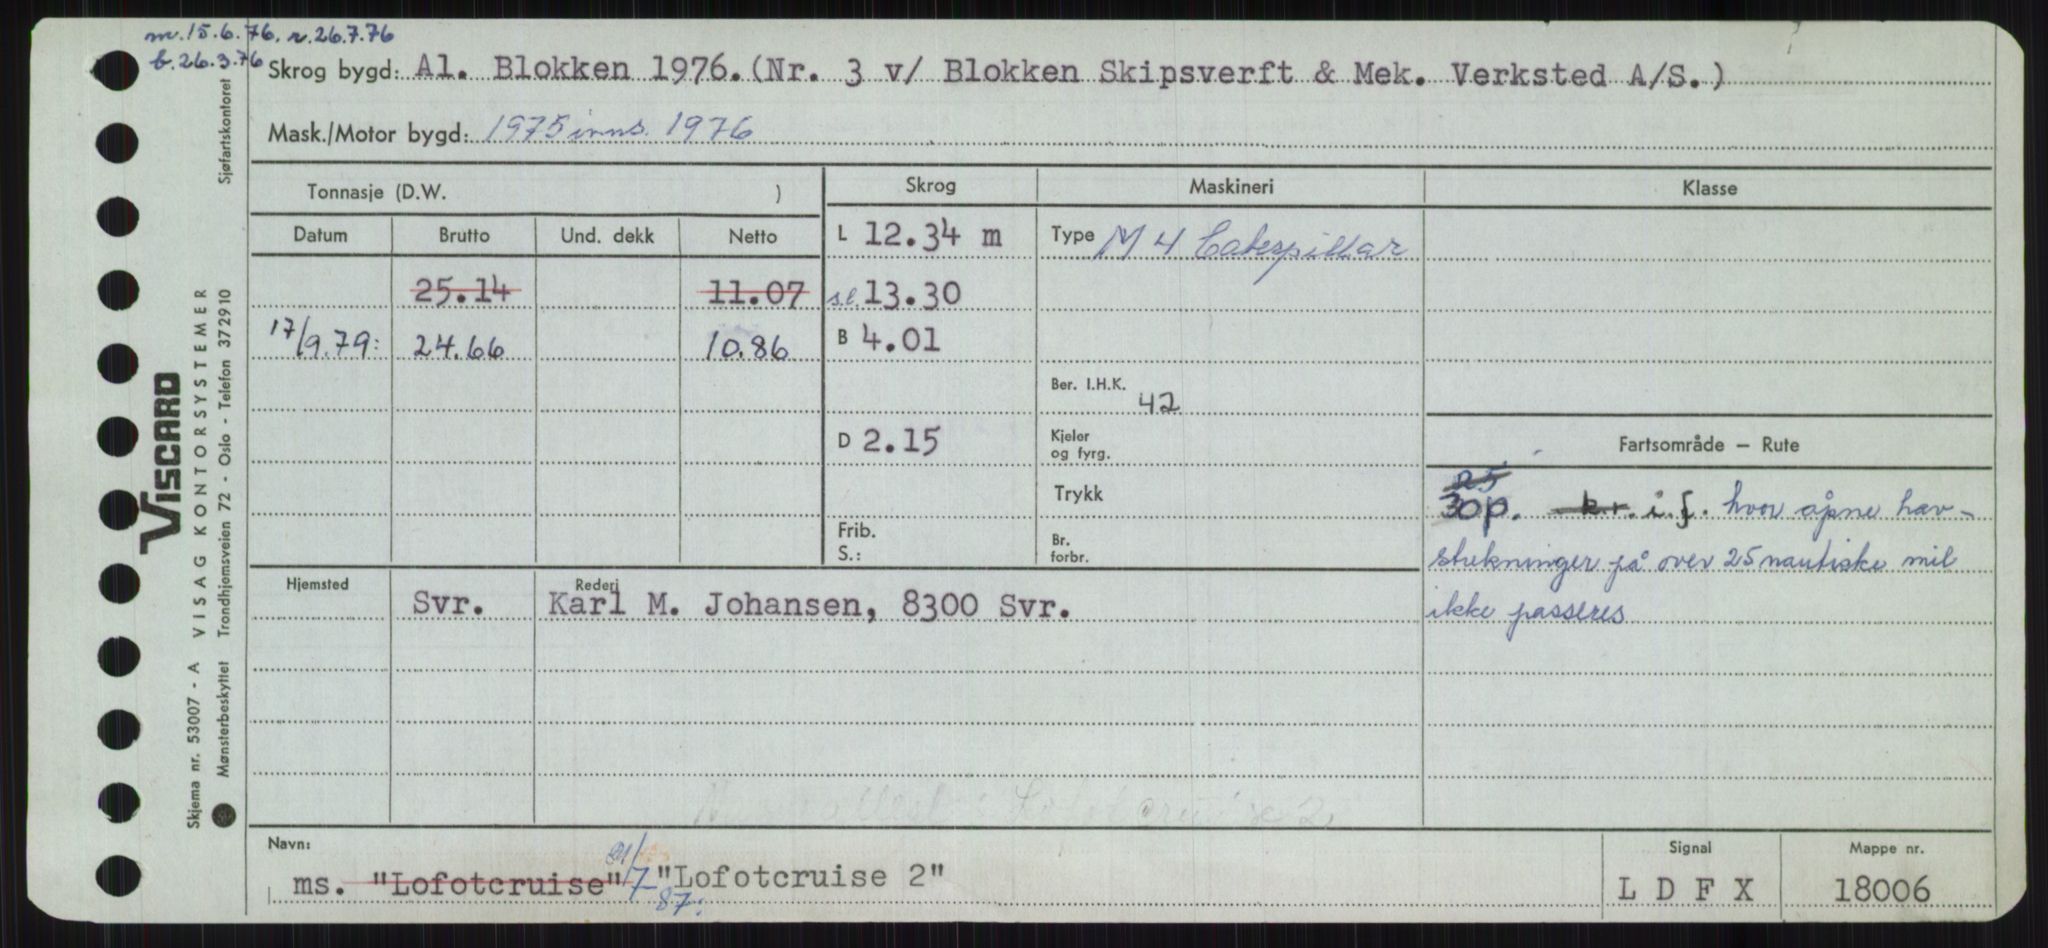 m. 15.6.76. r. 26.7.76
b. 26.3.76
Skrog bygd: Al. Blokken 1976.(Nr. 3 v/ Blokken Skipsverft & Mek. Verksted A/S.)
Mask./Motor bygd: 1975 inns. 1976
Tonnasje (D.W. )
Skrog
Maskineri
Klasse
Datum
Brutto
Und. dekk
Netto
L 12.34 m
Type M 4 Caterpillar
25.14
11.07
s.l. 13.30
17/9.79:
24.66
10.86
B 4.01
Ber. I.H.K.
42
D 2.15
Kjeler
og fyrg.
Fartsområde — Rute
Trykk
25
30p. kr. i.f. hvor åpne hav-
strekninger på over 25 nautiske mil
ikke passeres
Frib.
S.:
Br.
forbr.
Hjemsted
Svr.
Rederi
Karl M. Johansen, 8300 Svr.
Lofotcruise 2
Navn:
ms. "Lofotcruise" 21/7-87: "Lofotcruise 2"
Signal
L D F X
Mappe nr.
18006
Skjema nr. 53007 - A VISAG KONTORSYSTEMER
Mønsterbeskyttet Trondhjemsveien 72 - Oslo - Telefon 372910 Sjøfartskontoret
VISCARD